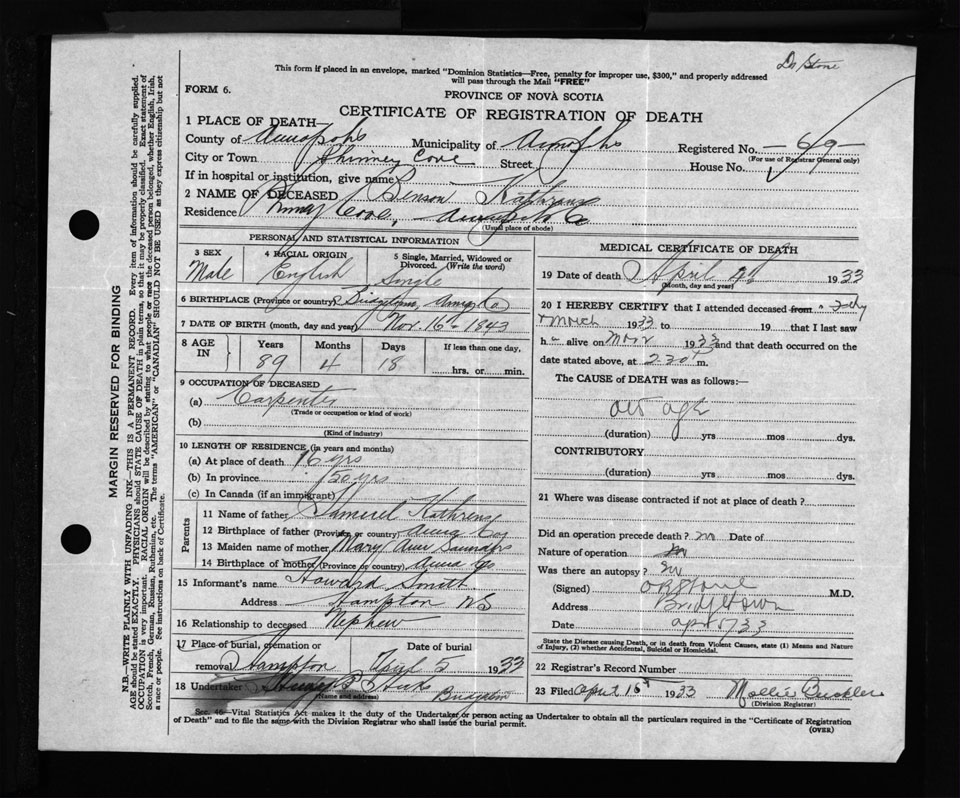 Dr Stone
This form if placed in an envelope, marked "Dominion Statistics—Free, penalty for improper use, $300," and properly addressed
will pass through the Mail "FREE"
FORM 6.
PROVINCE OF NOVA SCOTIA
CERTIFICATE OF REGISTRATION OF DEATH
1 PLACE OF DEATH—
County of Annapolis Municipality of Annapolis Registered No.
(For use of Registrar General only)
City or Town Phinney Cove Street House No.
If in hospital or institution, give name
2 NAME OF DECEASED Benson Kathrens
Residence Phinney Cove, Annapolis Co
(Usual place of abode)
PERSONAL AND STATISTICAL INFORMATION
3 SEX 4 RACIAL ORIGIN 5 Single, Married, Widowed or Divorced. (Write the word)
Male English Single
6 BIRTHPLACE (Province or country) Bridgetown, Co
7 DATE OF BIRTH (month, day and year) Nov. 16 - 1843
8 AGE IN Years Months Days If less than one day,
89 4 18 hrs. or min.
9 OCCUPATION OF DECEASED
(a) Carpenter
(Trade or occupation or kind of work)
(b)
(Kind of industry)
10 LENGTH OF RESIDENCE (in years and months)
(a) At place of death yrs
(b) In province 50 yrs
(c) In Canada (if an immigrant)
Parents
11 Name of father Samuel Kathrens
12 Birthplace of father (Province or country) Anna Co
13 Maiden name of mother Mary Ann Saunders
14 Birthplace of mother (Province or country) Anna Co
15 Informant's name Howard Smith
Address Hampton NS
16 Relationship to deceased Nephew
17 Place of burial, cremation or removal Date of burial
Hampton April 5 1933
18 Undertaker
(Name and address)
MEDICAL CERTIFICATE OF DEATH
19 Date of death April 1933
(Month, day and year)
20 I HEREBY CERTIFY that I attended deceased from
March 1933 to 19 that I last saw
h alive on Mar 1933 and that death occurred on the
date stated above, at 2.30 P m.
The CAUSE OF DEATH was as follows:—
old age
(duration) yrs mos dys.
CONTRIBUTORY
(duration) yrs mos dys.
21 Where was disease contracted if not at place of death?
Did an operation precede death? no Date of
Nature of operation
Was there an autopsy?
(Signed) M.D.
Address Bridgetown
Date
State the Disease causing Death, or in death from Violent Causes, state (1) Means and Nature
of Injury, (2) whether Accidental, Suicidal or Homicidal.
22 Registrar's Record Number
23 Filed April 1933 Mollie Buckler
(Division Registrar)
Sec. 46—Vital Statistics Act makes it the duty of the Undertaker or person acting as Undertaker to obtain all the particulars required in the "Certificate of Registration
of Death" and to file the same with the Division Registrar who shall issue the burial permit.
(OVER)
MARGIN RESERVED FOR BINDING
N.B.—WRITE PLAINLY WITH UNFADING INK—THIS IS A PERMANENT RECORD. Every item of information should be carefully supplied.
AGE should be stated EXACTLY. PHYSICIANS should STATE CAUSE OF DEATH in plain terms, so that it may be properly classified. Exact statement of
OCCUPATION is very important. RACIAL ORIGIN will be described by stating to what people or race the deceased person belonged, whether English, Irish,
Scotch, French, German, Russian, Ruthenian, etc. The terms "AMERICAN" or "CANADIAN" SHOULD NOT BE USED as they express citizenship but not
a race or people. See instructions on back of Certificate.